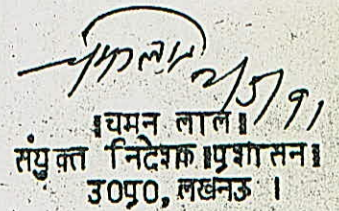 चमन लाल 2/5/91
॥चमन लाल॥
संयुक्त निदेशक ॥प्रशासन॥
उ0प्र0, लखनऊ ।